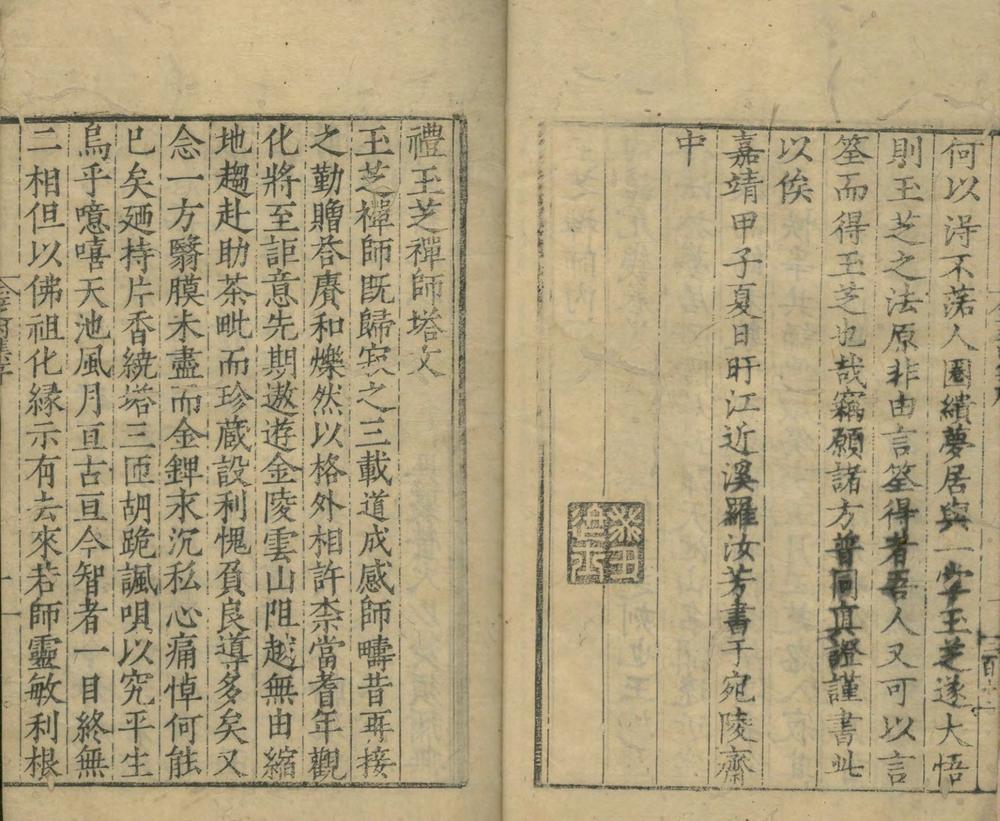 何以淂不落人圈繢夢居與一字玉芝遂大悟
則玉芝之法原非由言筌得者吾人又可以言
筌而得玉芝也哉竊願諸方普同真證謹書此
以俟
嘉靖甲子夏日盱江近溪羅汝芳書于宛陵齋
中
禮玉芝禪師塔文
玉芝禪師既歸寂之三載道成感師疇昔再接
之勤贈荅賡和爍然以格外相許柰當耆年觀
化將至詎意先期遨遊金陵雲山阻越無由縮
地趨赴助茶毗而珍蔵設利愧負良導多矣又
念一方翳膜未盡而金錍永沉私心痛悼何能
已矣廼持片香繞塔三匝胡跪諷唄以究平生
烏乎噫嘻天池風月亘古亘今智者一目終無
二相但以佛祖化緣示有去來若師靈敏利根